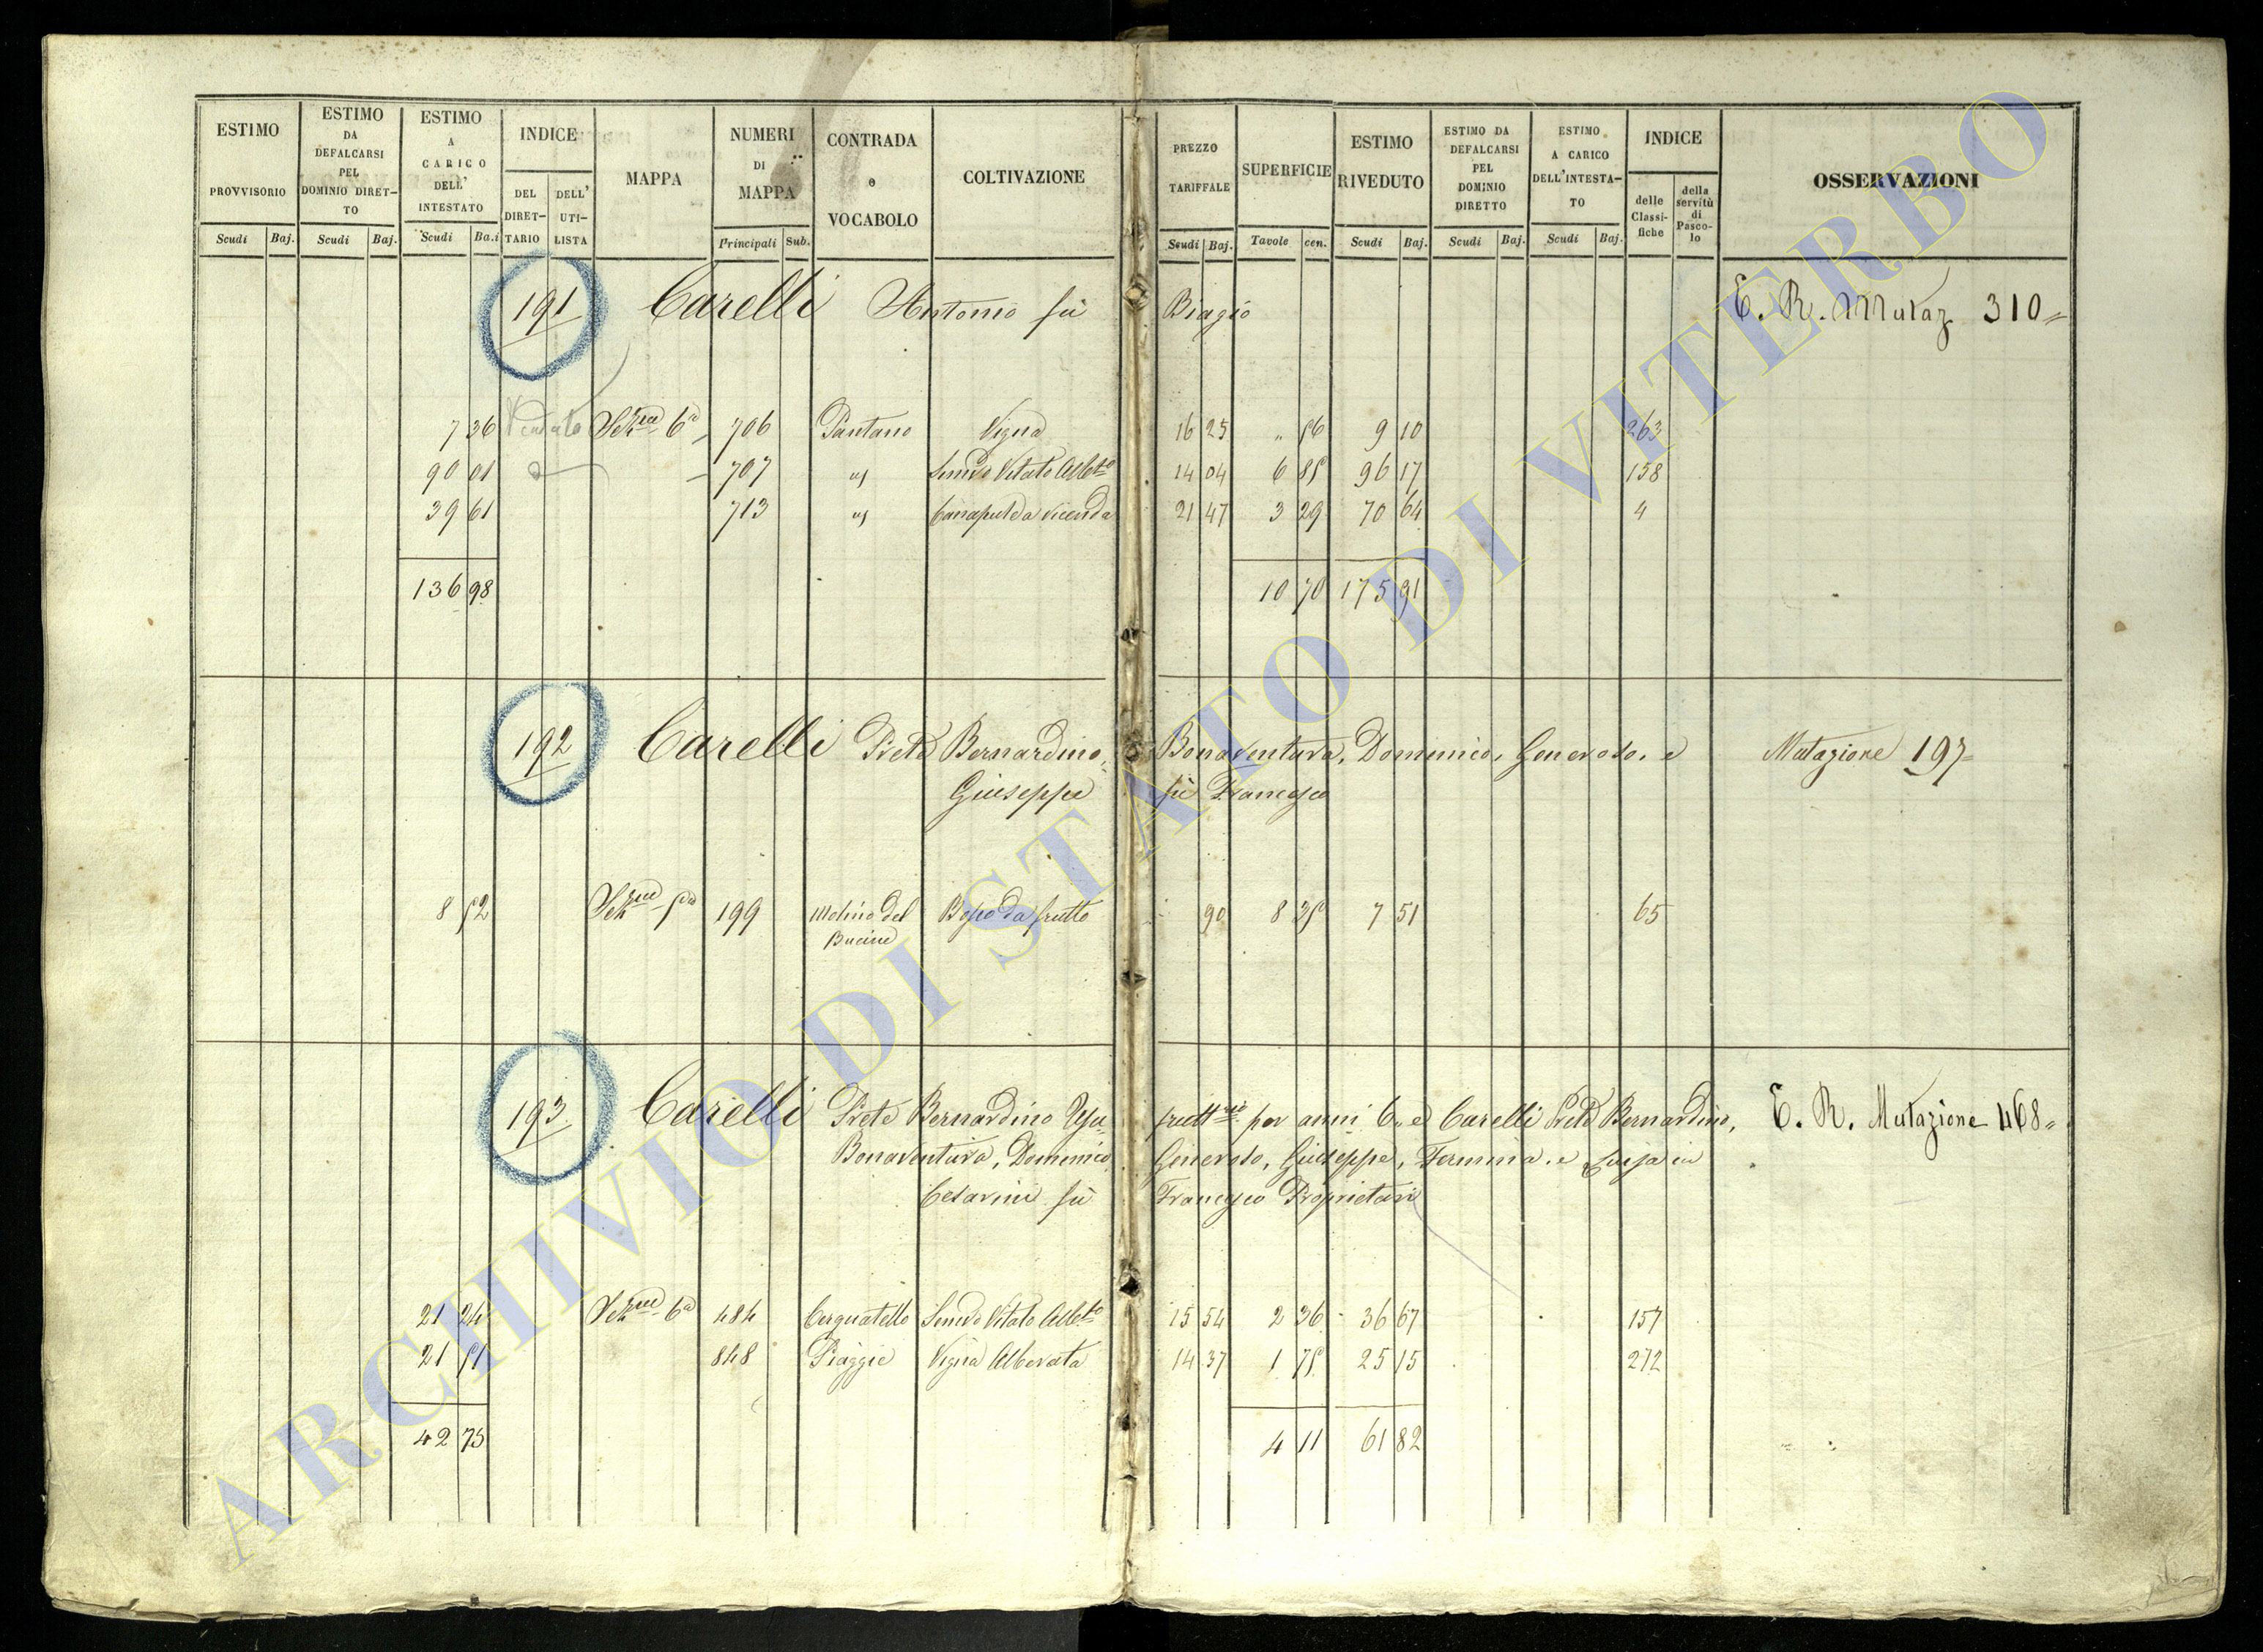 ESTIMO PROVVISORIO
ESTIMO DA DEFALCARSI PEL DOMINIO DIRETTO
ESTIMO A CARICO DELL' INTESTATO
INDICE
DEL DIRETTARIO
DELL' UTILISTA
MAPPA
NUMERI DI MAPPA
CONTRADA o VOCABOLO
COLTIVAZIONE
PREZZO TARIFFALE
SUPERFICIE
ESTIMO RIVEDUTO
ESTIMO DA DEFALCARSI PEL DOMINIO DIRETTO
ESTIMO A CARICO DELL'INTESTATO
INDICE
delle Classifiche
della servitù di Pascolo
OSSERVAZIONI
Scudi Baj. Scudi Baj. Scudi Ba.i Principali Sub. Scudi Baj. Tavole cen. Scudi Baj. Scudi Baj. Scudi Baj.
191 Carelli Antonio fù Biagio E. R. Mutaz 310=
7 36 Vendute Sezne 6a 706 Pantano Vigna 16 25 " 56 9 10 263
90 01 707 " Semvo Vitato Albto 14 04 6 85 96 17 158
39 61 713 " Canapule da vicenda 21 47 3 29 70 64 4
136 98 10 70 175 91
192 Carelli Prete Bernardino, Bonaventura, Domenico, Generoso, e Mutazione 197=
Giuseppe fù Francesco
8 52 Sezne 5a 199 Molino del Bucine Bosco da frutto 90 8 25 7 51 65
193 Carelli Prete Bernardino Usufruttrio per anni 6, e Carelli Prete Bernardino, E. R. Mutazione 468=
Bonaventura, Domenico Generoso, Giuseppe, Fermina, e Luisa in
Cesarini fù Francesco Proprietari
21 24 Sezne 6a 484 Cerquatello Semvo Vitato Albto 15 54 2 36 36 67 157
21 51 848 Piaggie Vigna Alberata 14 37 1 75 25 15 272
42 75 4 11 61 82
ARCHIVIO DI STATO DI VITERBO